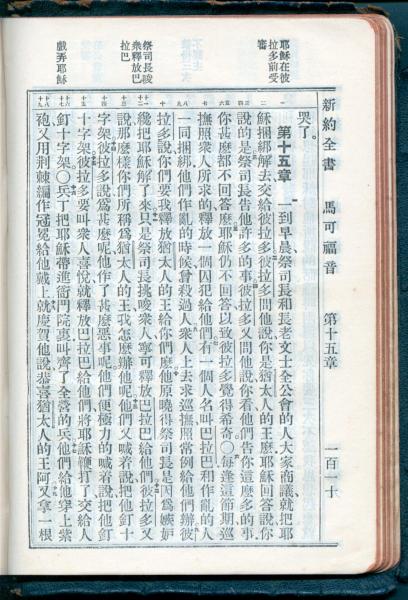 新約全書　馬可福音　第十五章　一百一十
耶穌在彼
拉多前受
審
祭司長唆
衆釋放巴
拉巴
戲弄耶穌
哭了。
第十五章　一到早晨祭司長和長老文士全公會的人大家商議就把耶
穌捆綁解去交給彼拉多彼拉多問他說你是猶太人的王麽耶穌回答說你
說的是祭司長告他許多的事彼拉多又問他說你看他們告你這麽多的事
你甚麽都不回答麽耶穌仍不回答以致彼拉多覺得希奇○每逢這節期巡
撫照衆人所求的釋放一個囚犯給他們有一個人名叫巴拉巴和作亂的人
一同捆綁他們作亂的時候曾殺過人衆人上去求巡撫照常例給他們辦彼
拉多說你們要我釋放猶太人的王給你們麽他原曉得祭司長是因爲嫉妒
纔把耶穌解了來只是祭司長挑唆衆人寧可釋放巴拉巴給他們彼拉多又
說那麽樣你們所稱爲猶太人的王我怎麽辦他呢他們又喊着說把他釘十
字架彼拉多說爲甚麽呢他作了甚麽惡事呢他們便極力的喊着說把他釘
十字架彼拉多要叫衆人喜悅就釋放巴拉巴給他們將耶穌鞭打了交給人
釘十字架○兵丁把耶穌帶進衙門院裏叫齊了全營的兵他們給他穿上紫
袍又用荆棘編作冠冕給他戴上就慶賀他說恭喜猶太人的王阿又拿一根